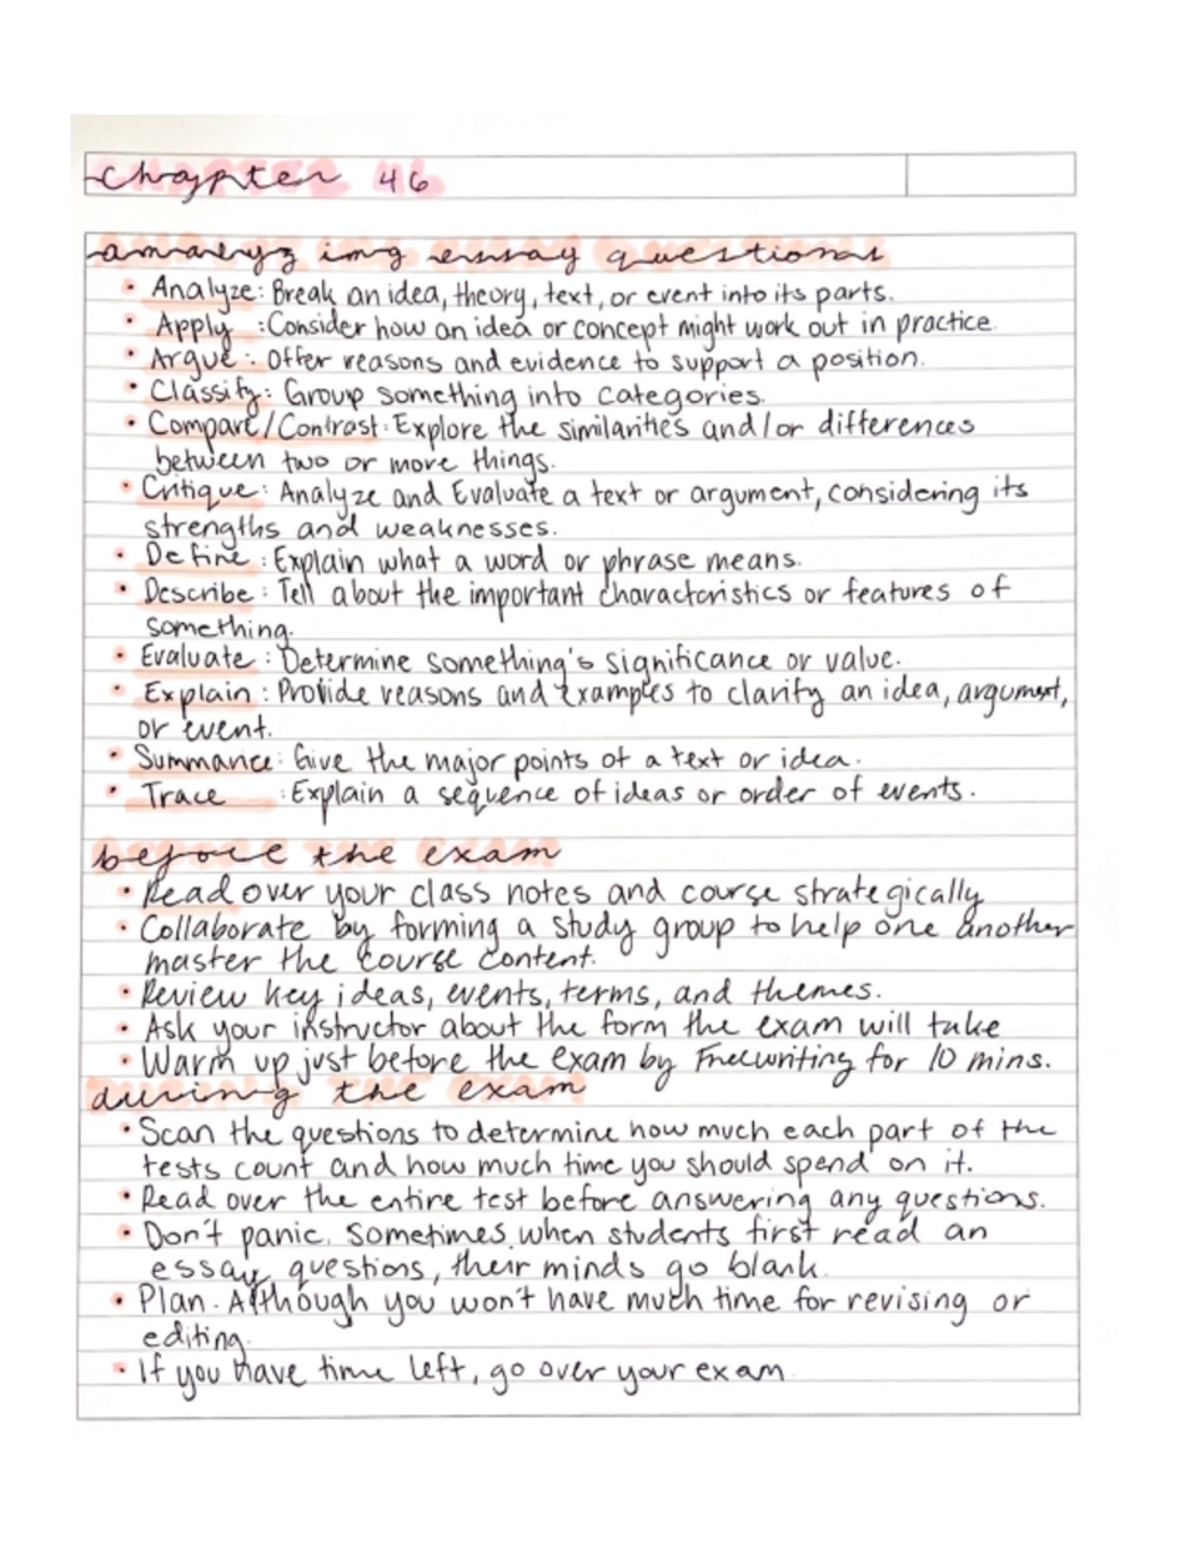 chapter 46
analyzing essay questions
• Analyze: Break an idea, theory, text, or event into its parts.
• Apply : Consider how an idea or concept might work out in practice.
• Argue : Offer reasons and evidence to support a position.
• Classify: Group something into categories.
• Compare/Contrast: Explore the similarities and/or differences
between two or more things.
• Critique: Analyze and Evaluate a text or argument, considering its
strengths and weaknesses.
• Define : Explain what a word or phrase means.
• Describe : Tell about the important characteristics or features of
something.
• Evaluate : Determine something's significance or value.
• Explain : Provide reasons and examples to clarify an idea, argument,
or event.
• Summarize: Give the major points of a text or idea.
• Trace : Explain a sequence of ideas or order of events.
before the exam
• Read over your class notes and course strategically
• Collaborate by forming a study group to help one another
master the course content.
• Review key ideas, events, terms, and themes.
• Ask your instructor about the form the exam will take
• Warm up just before the exam by Freewriting for 10 mins.
during the exam
• Scan the questions to determine how much each part of the
tests count and how much time you should spend on it.
• Read over the entire test before answering any questions.
• Don't panic. Sometimes when students first read an
essay questions, their minds go blank.
• Plan. Although you won't have much time for revising or
editing.
• If you have time left, go over your exam